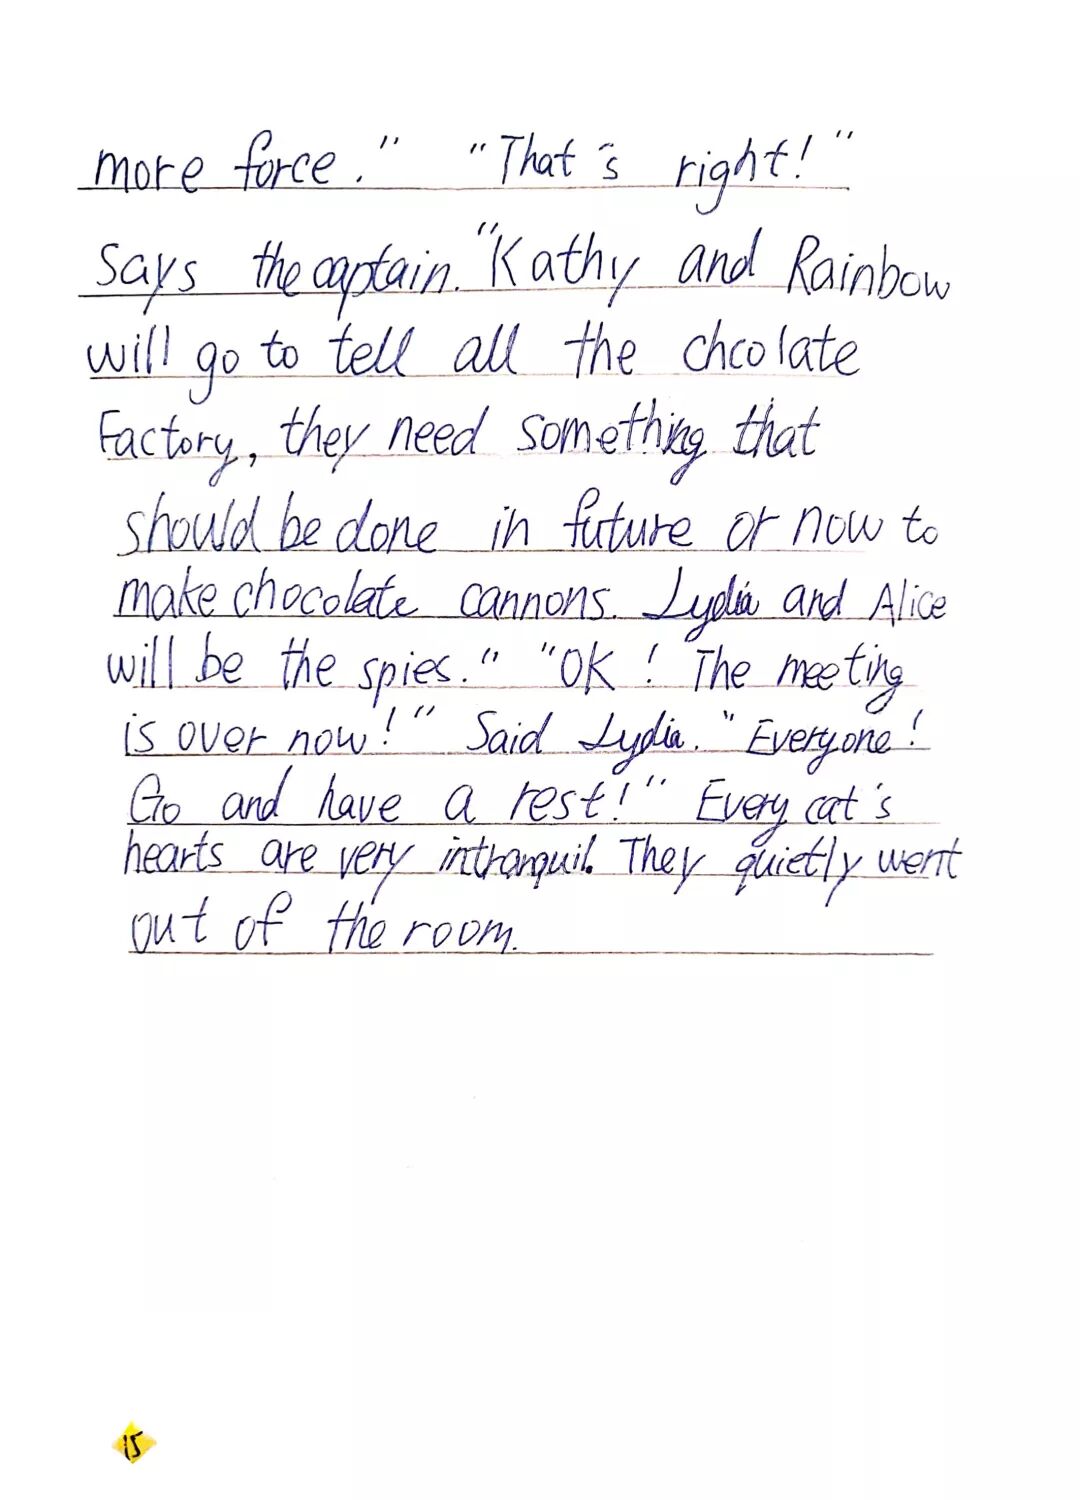 more force." "That's right!"
Says the captain. "Kathy and Rainbow
will go to tell all the chcolate
Factory, they need something that
should be done in future or now to
make chocolate cannons. Lydia and Alice
will be the spies." "OK! The meeting
is over now!" Said Lydia. "Everyone!
Go and have a rest!" Every cat's
hearts are very intranquil. They quietly went
out of the room.
15